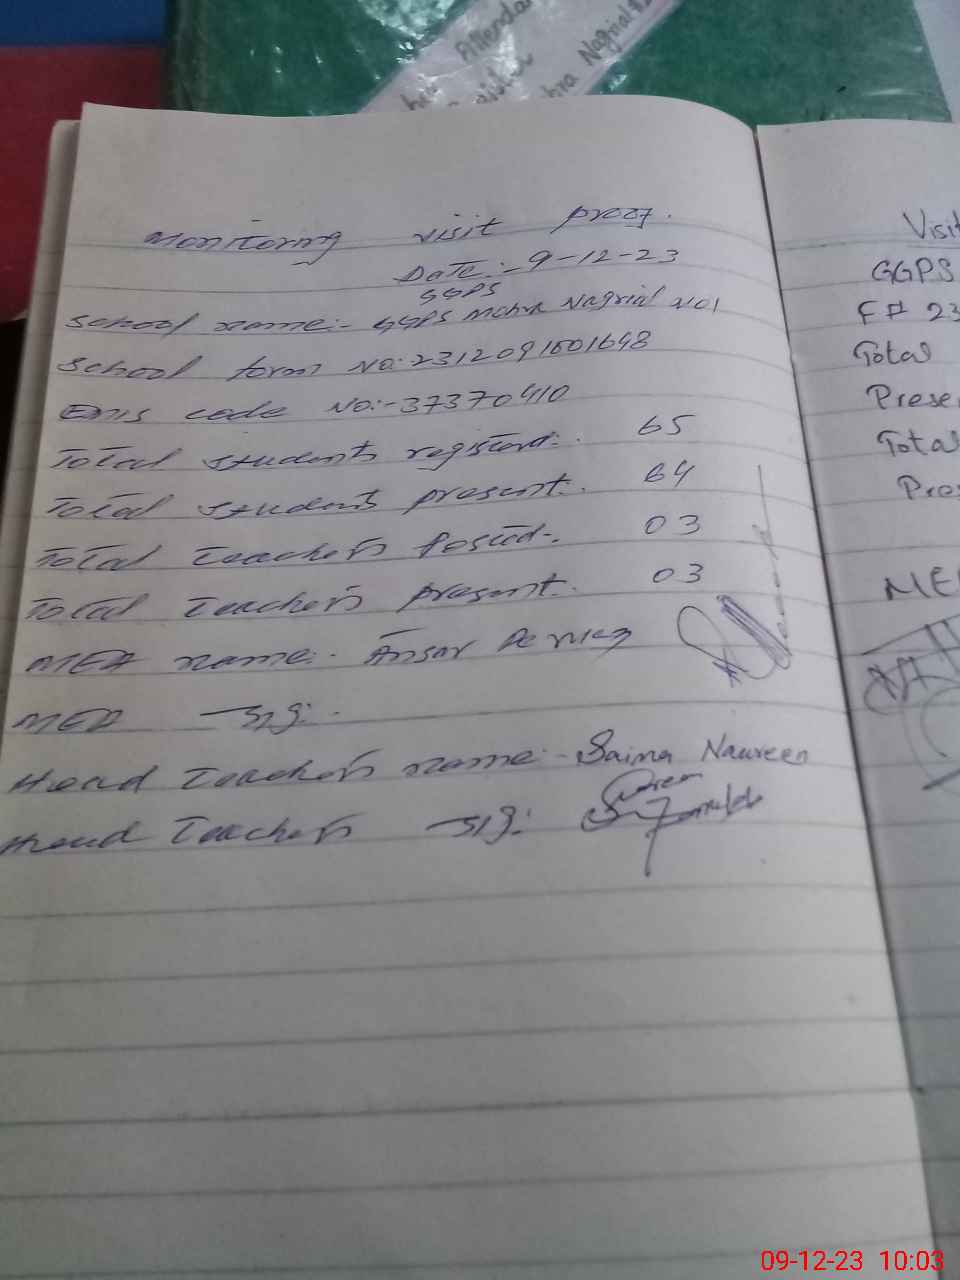 Attenda
Mohra Nagrial
Monitoring visit proof.
Date:- 9-12-23
GGPS
School name:- GGPS Mohra Nagrial No1
School form No:-2312091001648
Emis code No:-37370410
Total students registerd:. 65
Total students present:. 64
Total Teachers Posted-. 03
Total Teachers present:. 03
MEA name:. Ansar Pervez
MEA Sig:.
Head Teachers name:- Saima Naureen
Head Teachers Sig:
Visit
GGPS
F# 23
Total
Prese
Total
Pres
ME
09-12-23 10:03